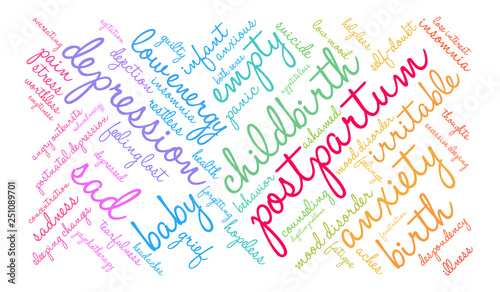 overeating
agitation
guilty
infant
anxious
suicide
self-doubt
lose interest
insomnia
pain
stress
worthless
depression
dejection
low energy
insomnia
restless
birth
empty
panic
low mood
childbirth
postpartum
ashamed
mood disorder
irritable
thoughts
excessive sleeping
angry outbursts
postnatal depression
depressed
feeling lost
health
forgetting
behavior
feelings
concentration
sadness
sleeping changes
sad
psychotherapy
tearfulness
baby
headaches
grief
hopeless
counseling
mood disorder
fatigue
aches
anxiety
frustration
birth
despondency
illness
Adobe Stock | #251089701